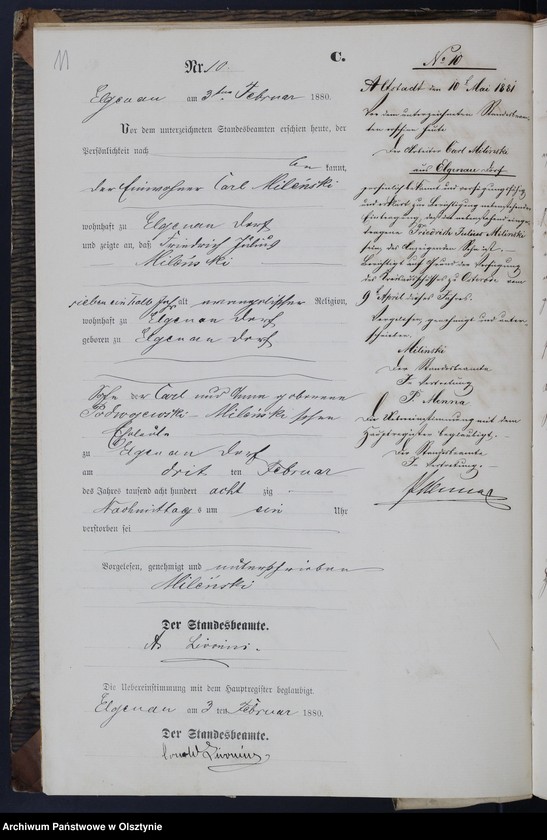 11
C.
Nr. 10.
Elgenau am 3ten Februar 1880.
Vor dem unterzeichneten Standesbeamten erschien heute, der
Persönlichkeit nach
be kannt,
der Einwohner Carl Mileński
wohnhaft zu Elgenau Dorf
und zeigte an, daß Friedrich Julius
Mileński
sieben einhalb Jahr alt evangelischer Religion,
wohnhaft zu Elgenau Dorf
geboren zu Elgenau Dorf
Sohn der Carl und geborene
Mileński schen
Eheleute
zu Elgenau Dorf
am drit ten Februar
des Jahres tausend acht hundert acht zig
Nachmittags um ein Uhr
verstorben sei
Vorgelesen, genehmigt und unterschrieben
Mileński
Der Standesbeamte.
Die Uebereinstimmung mit dem Hauptregister beglaubigt
Elgenau am 3 ten Februar 1880.
Der Standesbeamte.
No 10
Altstadt den 10 Mai 1881
Vor dem unterzeichneten Standesbeam-
ten erschien heute
Der Carl Milinski
aus Elgenau Dorf
persönlich bekannt und
und erklärt zur Berichtigung nebenstehender
Eintragung, daß der nebenstehend einge-
tragene Friedrich Julius Milinski
Sohn des Anzeigenden ist.
Berichtigt auf Grund der Verfügung
des Kreisausschusses zu Osterode vom
9 April dieses Jahres.
Vorgelesen, genehmigt und unter-
schrieben.
Milinski
Der Standesbeamte
In Vertretung
Die Uebereinstimmung mit dem
Hauptregister beglaubigt.
Der Standesbeamte
In Vertretung.
Archiwum Państwowe w Olsztynie